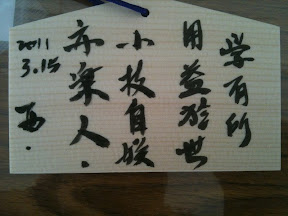 学有所
用益於世
小技自娱
亦樂人.
2011
3.15